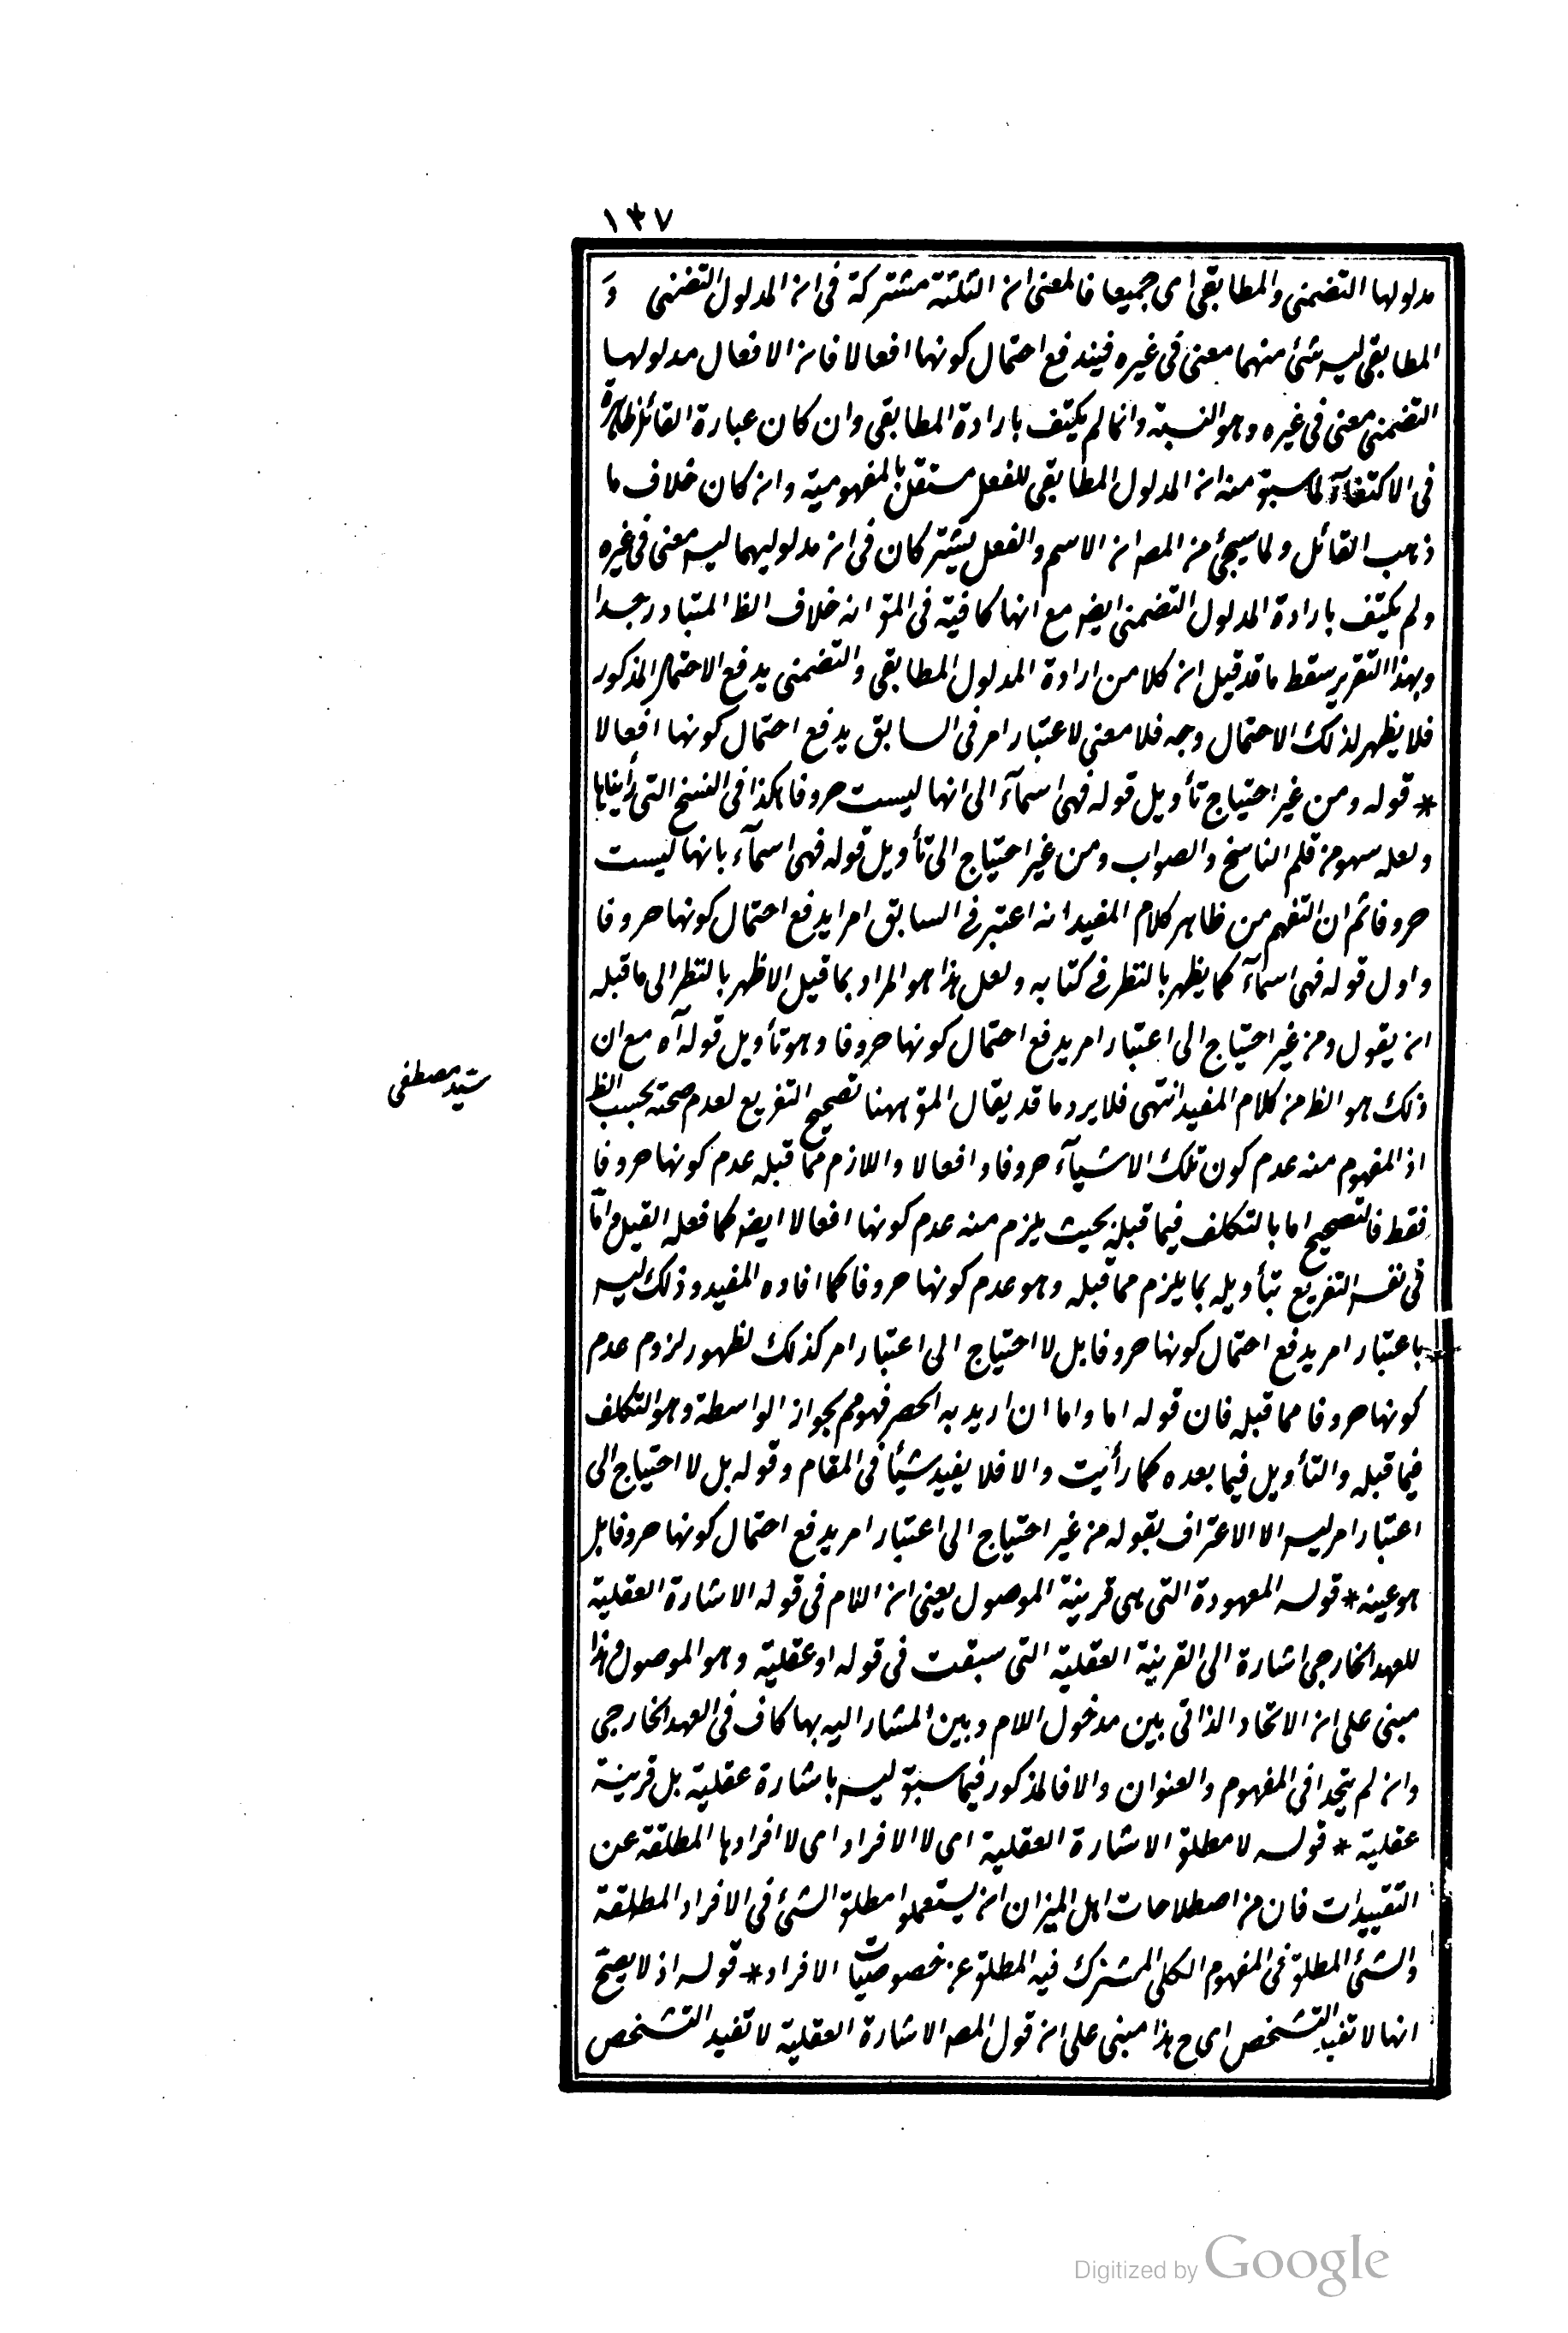 ١٣٧
مدلولها التضمنى والمطابقى اى جميعا فالمعنى ان الثلثة مشتركة فى ان المدلول التضمنى و
المطابقى ليس شئ منهما معنى فى غيره فيندفع احتمال كونها افعالا فان الافعال مدلولها
التضمنى معنى فى غيره وهو النسبة وانما لم يكتف بارادة المطابقى وان كان عبارة القائل ظاهرة
فى الاكتفاء لما سبق منه ان المدلول المطابقى للفعل مستقل بالمفهومية وان كان خلاف ما
ذهب القائل ولما سيجئ من المص ان الاسم والفعل يشتركان فى ان مدلوليهما ليس معنى فى غيره
ولم يكتف بارادة المدلول التضمنى ايض مع انها كافية فى المق انه خلاف الظ المتبادر جدا
وبهذا التقرير سقط ما قد قيل ان كلا من ارادة المدلول المطابقى والتضمنى يدفع الاحتمال المذكور
فلا يظهر لذلك الاحتمال وجه فلا معنى لاعتبار امر فى السابق يدفع احتمال كونها افعالا
* قوله ومن غير احتياج تأويل قوله فهى اسمآء الى انها ليست حروفا هكذا فى النسخ التى رأيناها
ولعله سهو من قلم الناسخ والصواب ومن غير احتياج الى تأويل قوله فهى اسمآء بانها ليست
حروفا ثم ان التفهم من ظاهر كلام المفيد انه اعتبر فى السابق امرا يدفع احتمال كونها حروفا
واول قوله فهى اسمآء كما يظهر بالنظر فى كتابه ولعل هذا هو المراد بما قيل الاظهر بالنظر الى ما قبله
ان يقول ومن غير احتياج الى اعتبار امر يدفع احتمال كونها حروفا وهو تأويل قوله آه مع ان
ذلك هو الظ من كلام المفيد انتهى فلا يرد ما قد يقال المق ههنا تصحيح التفريع لعدم صحته بحسب الظ
سيد مصطفى
اذ المفهوم منه عدم كون تلك الاشيآء حروفا وافعالا واللازم مما قبله عدم كونها حروفا
فقط فالتصحيح اما بالتكلف فيما قبله بحيث يلزم منه عدم كونها افعالا ايض كما فعله القيل واما
فى نفس التفريع بتأويله بما يلزم مما قبله وهو عدم كونها حروفا كما افاده المفيد وذلك ليس
باعتبار امر يدفع احتمال كونها حروفا بل لا احتياج الى اعتبار امر كذلك لظهور لزوم عدم
كونها حروفا مما قبله فان قوله اما واما ان اريد به الحصر فهو مم بجواز الواسطة وهو التكلف
فيما قبله والتأويل فيما بعده كما رأيت والا فلا يفيد شيئا فى المقام وقوله بل لا احتياج الى
اعتبار امر ليس الا الاعتراف بقوله من غير احتياج الى اعتبار امر يدفع احتمال كونها حروفا بل
هو عينه * قوله المعهودة التى هى قرينة الموصول يعنى ان اللام فى قوله الاشارة العقلية
للعهد الخارجى اشارة الى القرينة العقلية التى سبقت فى قوله او عقلية وهو الموصول وهذا
مبنى على ان الاتحاد الذاتى بين مدخول اللام وبين المشار اليه بها كاف فى العهد الخارجى
وان لم يتحدا فى المفهوم والعنوان والا فالمذكور فيما سبق ليس باشارة عقلية بل قرينة
عقلية * قوله لا مطلق الاشارة العقلية اى لا الافراد اى لا افرادها المطلقة عن
التقييدات فان من اصطلاحات اهل الميزان ان يستعملوا مطلق الشئ فى الافراد المطلقة
والشئ المطلق فى المفهوم الكلى المشترك فيه المطلق عن خصوصيات الافراد * قوله اذ لا يصح
انها لا تفيد التشخص اى ح هذا مبنى على ان قول المص الاشارة العقلية لا تفيد التشخص
Digitized by Google